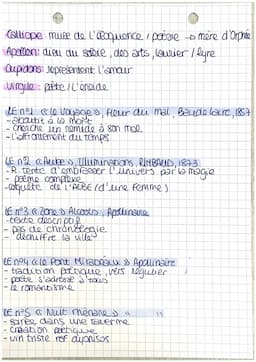 Calliope: muse de l'éloquence / poésie → mère d'Orphée
Apollon: dieu du soleil, des arts, laurier / lyre
Cupidons: représentent l'amour
Virgile: poète / l'énéide
LE n°1 « le Voyage », Fleur du mal, Baudelaire, 1857
- aboutit à la mort
- cherche un remède à son mal
- l'affrontement du temps
LE n°2 « Aube », Illuminations, RIMBAUD, 1873
- R tente d'embrasser l'univers par la magie
- poème complexe
- conquête de l'AUBE (d'une femme)
LE n°3 « Zone » Alcools, Apollinaire
- texte descriptif
- pas de chronologie
- décrire la ville
LE n°4 « le Pont Mirabeau » Apollinaire
- tradition poétique, vers régulier
- poète s'adresse à tous
- le romantisme
LE n°5 « Nuit rhénane » " "
- soirée dans une taverne
- création poétique
- vin triste ref dyonisos